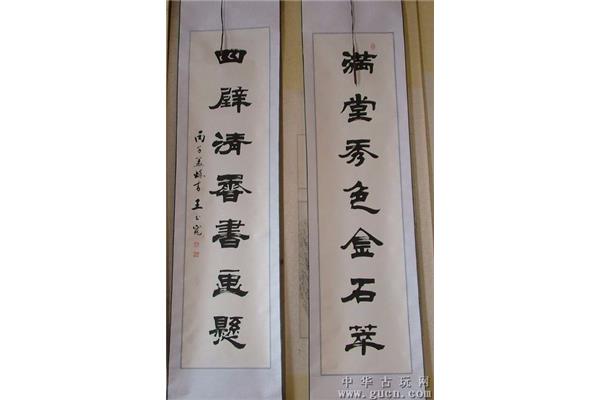 滿堂秀色金石萃
四壁清香書画懸
丙子
中华古玩网
www.gucn.com